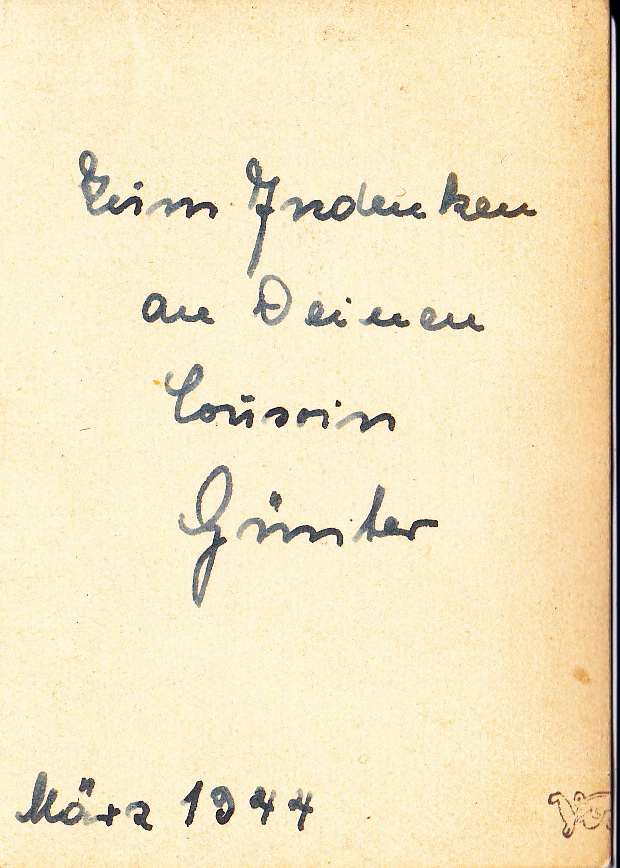 Zum Andenken
an Deinen
Cousin
Günter
März 1944